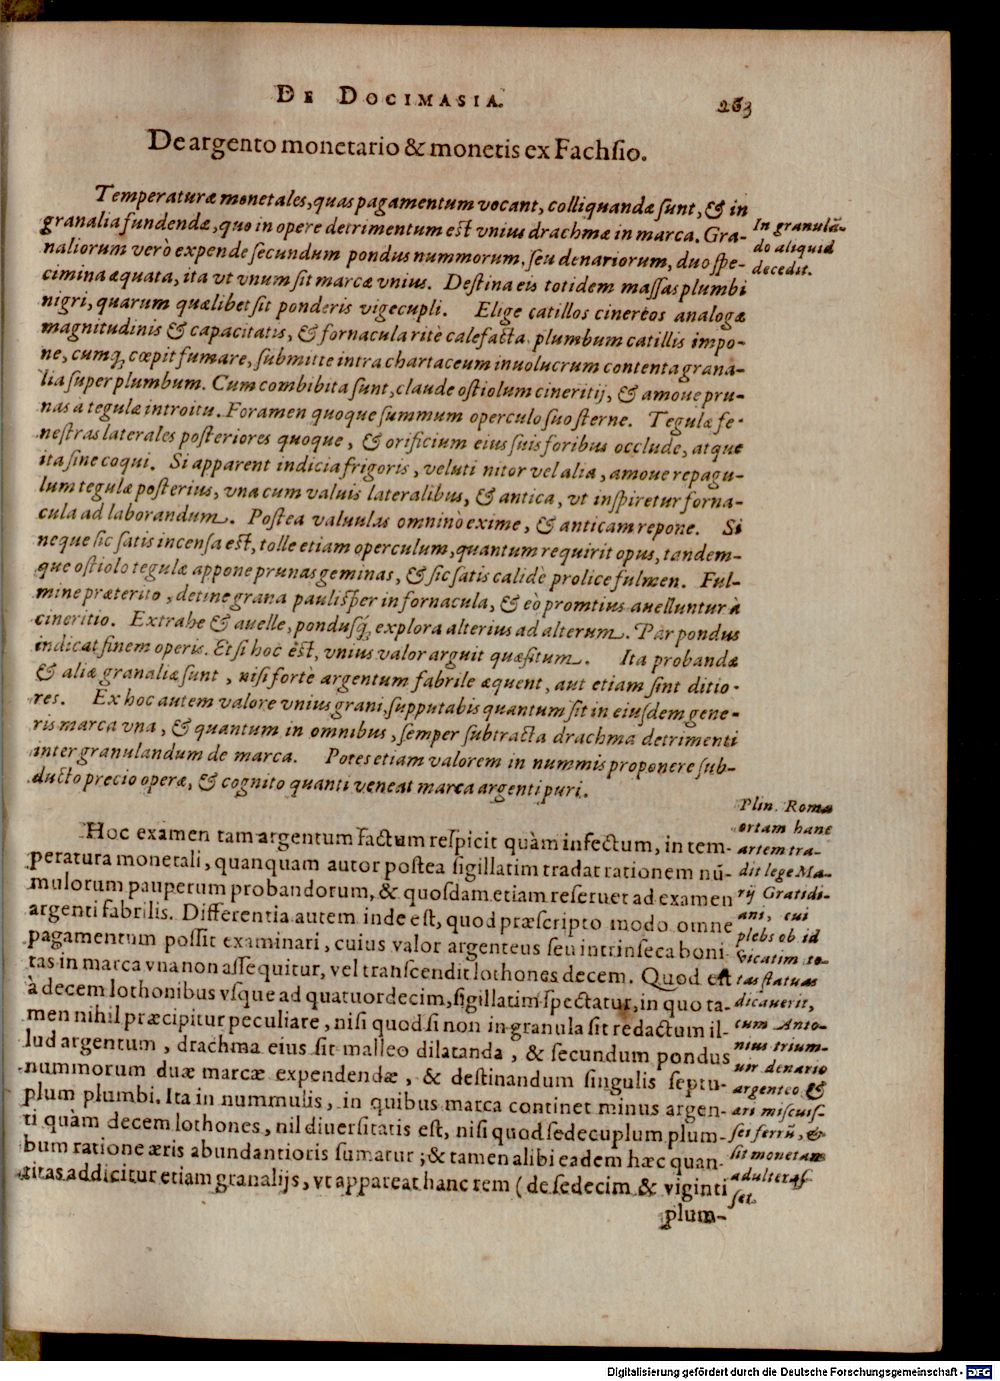 DE DOCIMASIA.
263
De argento monetario & monetis ex Fachsio.
Temperaturæ monetales, quas pagamentum vocant, colliquandæ sunt, & in
granalia fundendæ, quo in opere detrimentum est vnius drachmæ in marca. Gra-
naliorum verò expende secundum pondus nummorum, seu denariorum, duo spe-
cimina æquata, ita vt vnum sit marcæ vnius. Destina eis totidem massas plumbi
nigri, quarum quælibet sit ponderis vigecupli. Elige catillos cinereos analogæ
magnitudinis & capacitatis, & fornacula ritè calefacta plumbum catillis impo-
ne, cumq́; cœpit fumare, submitte intra chartaceum inuolucrum contenta grana-
lia super plumbum. Cum combibita sunt, claude ostiolum cineritij, & amoue pru-
nas à tegulæ introitu. Foramen quoque summum operculo suo sterne. Tegulæ fe-
nestras laterales posteriores quoque, & orificium eius suis foribus occlude, atque
ita sine coqui. Si apparent indicia frigoris, veluti nitor vel alia, amoue repagu-
lum tegulæ posterius, vna cum valuis lateralibus, & antica, vt inspiretur forna-
cula ad laborandum. Postea valuulas omninò exime, & anticam repone. Si
neque sic satis incensa est, tolle etiam operculum, quantum requirit opus, tandem-
que ostiolo tegulæ appone prunas geminas, & sic satis calidè prolice fulmen. Ful-
mine præterito, detine grana paulisper in fornacula, & eò promtius auelluntur à
cineritio. Extrahe & auelle, pondusq́; explora alterius ad alterum. Par pondus
indicat finem operis. Et si hoc est, vnius valor arguit quæsitum. Ita probandæ
& aliæ granaliæ sunt, nisi forte argentum fabrile æquent, aut etiam sint ditio-
res. Ex hoc autem valore vnius grani, supputabis quantum sit in eiusdem gene-
ris marca vna, & quantum in omnibus, semper subtracta drachma detrimenti
inter granulandum de marca. Potes etiam valorem in nummis proponere sub-
ducto precio operæ, & cognito quanti veneat marca argenti puri.
In granulā-
do aliquid
decedit.
Hoc examen tam argentum factum respicit quàm infectum, in tem-
peratura monetali, quanquam autor postea sigillatim tradat rationem nū-
mulorum pauperum probandorum, & quosdam etiam reseruet ad examen
argenti fabrilis. Differentia autem inde est, quod præscripto modo omne
pagamentum possit examinari, cuius valor argenteus seu intrinseca boni-
tas in marca vna non assequitur, vel transcendit lothones decem. Quod est
à decem lothonibus vsque ad quatuordecim, sigillatim spectatur, in quo ta-
men nihil præcipitur peculiare, nisi quod si non in granula sit redactum il-
lud argentum, drachma eius sit malleo dilatanda, & secundum pondus
nummorum duæ marcæ expendendæ, & destinandum singulis septu-
plum plumbi. Ita in nummulis, in quibus marca continet minus argen-
ti quàm decem lothones, nil diuersitatis est, nisi quod sedecuplum plum-
bum ratione æris abundantioris sumatur; & tamen alibi eadem hæc quan-
titas addicitur etiam granalijs, vt appareat hanc rem ( de sedecim & viginti
plum-
Plin. Romæ
ortam hanc
artem tra-
dit lege Ma-
rij Gratidi-
ani, cui
plebs ob id
vicatim to-
tas statuas
dicauerit,
cum Anto-
nius trium-
uir denario
argenteo &
æri miscuis-
set ferrū, &
sit monetam
adulteras-
set.
Digitalisierung gefördert durch die Deutsche Forschungsgemeinschaft - DFG